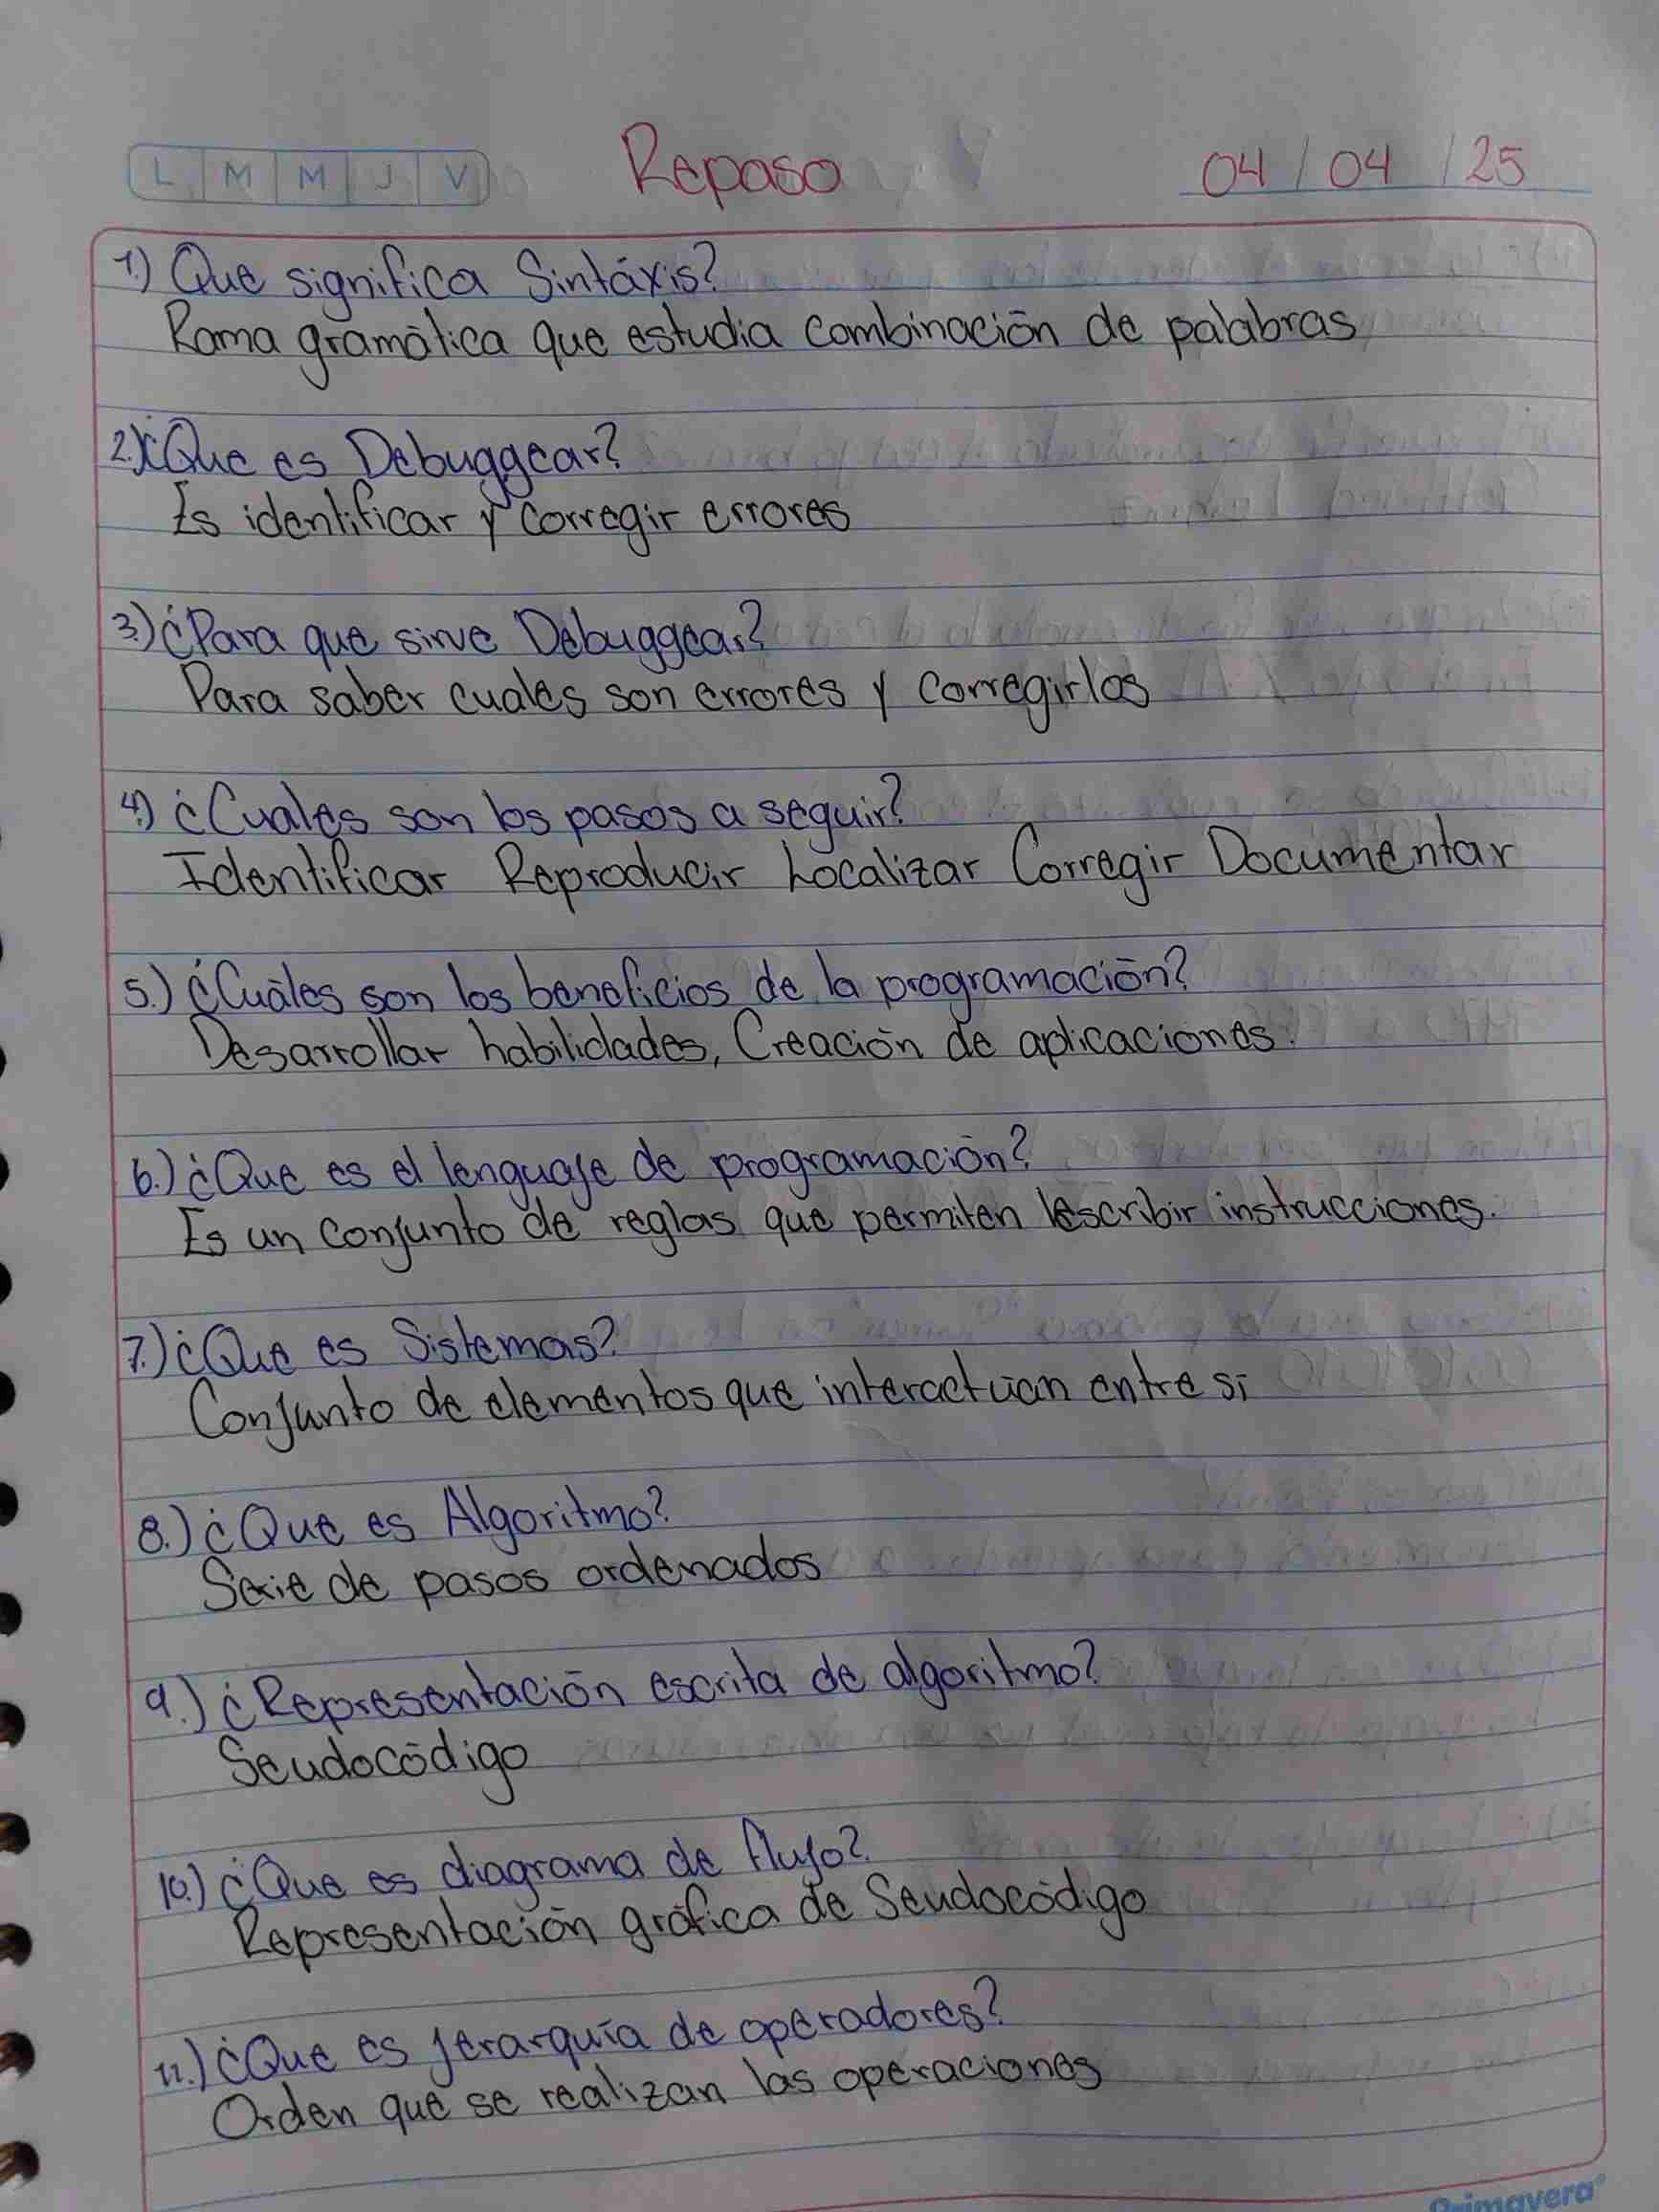 L M M J V
Repaso
04 / 04 / 25
1.) Que significa Sintáxis?
Rama gramática que estudia combinación de palabras
2.) ¿Que es Debuggear?
Es identificar y corregir errores
3.) ¿Para que sirve Debuggear?
Para saber cuales son errores y corregirlos
4.) ¿Cuales son los pasos a seguir?
Identificar Reproducir Localizar Corregir Documentar
5.) ¿Cuáles son los beneficios de la programación?
Desarrollar habilidades, Creación de aplicaciones.
6.) ¿Que es el lenguaje de programación?
Es un conjunto de reglas que permiten escribir instrucciones.
7.) ¿Que es Sistemas?
Conjunto de elementos que interactúan entre sí
8.) ¿Que es Algoritmo?
Serie de pasos ordenados
9.) ¿Representación escrita de algoritmo?
Seudocódigo
10.) ¿Que es diagrama de flujo?
Representación gráfica de Seudocódigo
11.) ¿Que es jerarquía de operadores?
Orden que se realizan las operaciones
Primavera